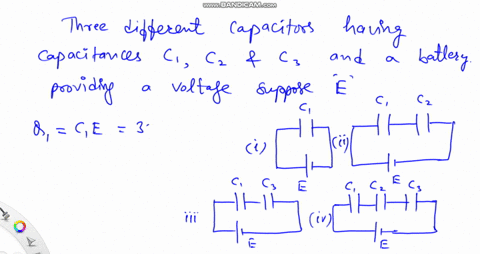 WWW.BANDICAM.COM
Three different capacitors having
capacitances C1, C2 & C3 and a battery
providing a voltage suppose "E"
Q1 = C1E = 3
(i) C1 E
(ii) C1 C2 E
iii C1 C3 E
(iv) C1 C2 C3 E